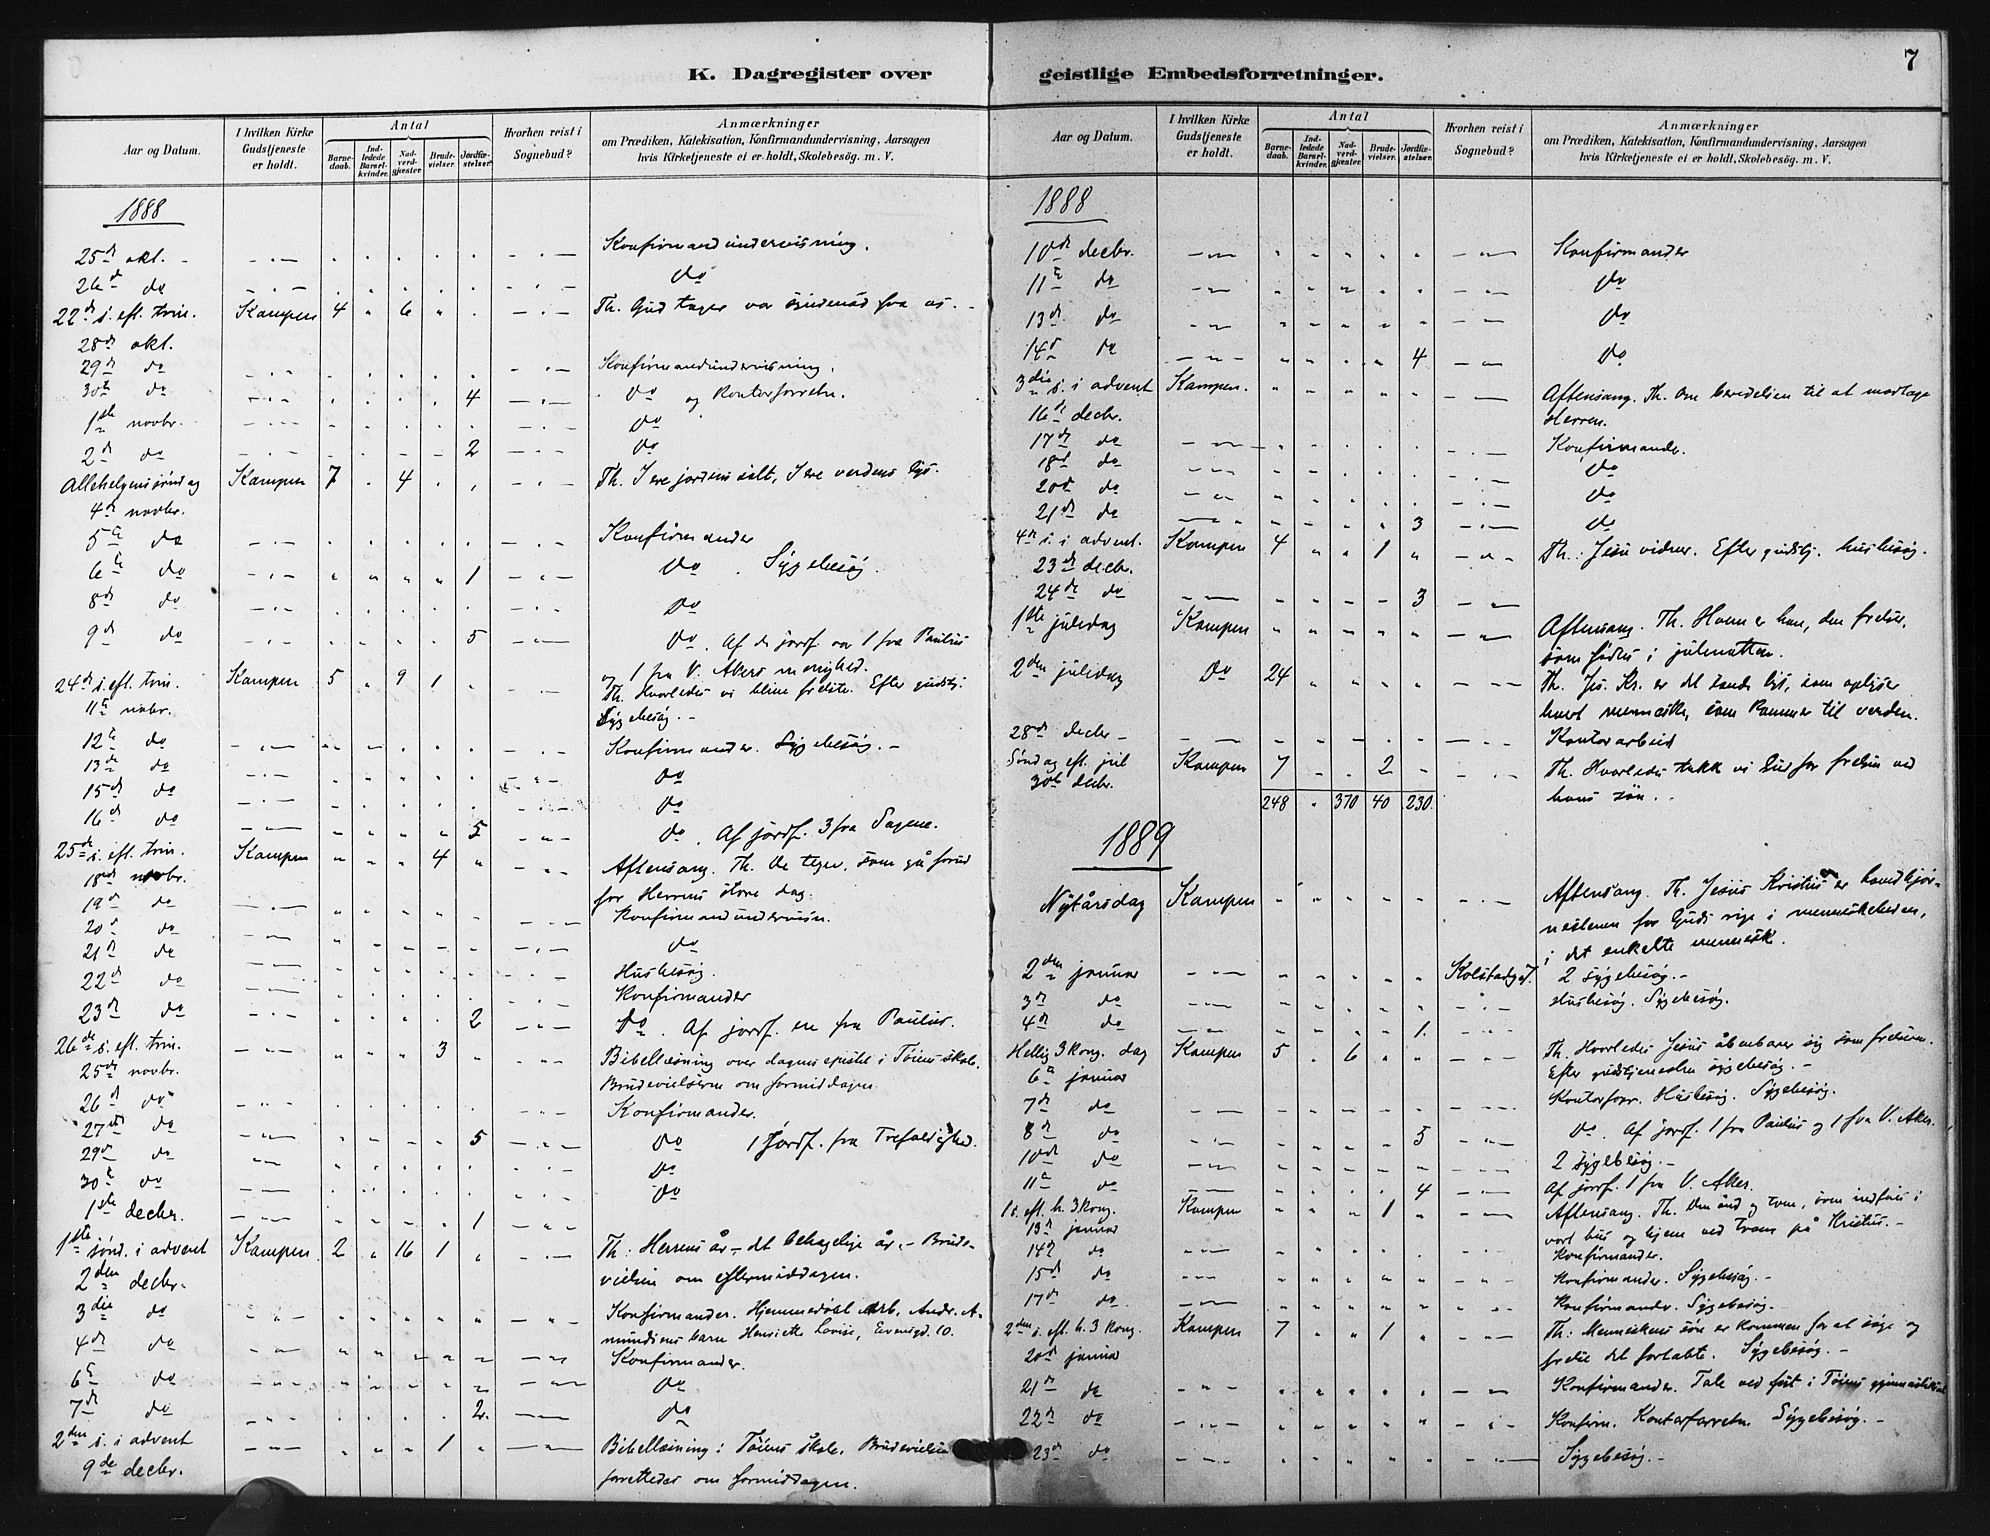 7
K. Dagregister over geistlige Embedsforretninger.
Aar og Datum. | I hvilken Kirke Gudstjeneste er holdt. | Antal | Barnedaab. | Indledede Barselkvinder. | Nadverdgjester. | Brudevielser. | Jordfæstelser. | Hvorhen reist i Sognebud? | Anmærkninger om Prædiken, Katekisation, Konfirmandundervisning, Aarsagen hvis Kirketjeneste ei er holdt, Skolebesög. m. V.
1888
25de okt. Konfirmandundervisning.
26de do do
22de s. eft. trin. Kampen 4 6 Th. Gud tager vor syndenød fra os.
28de okt.
29de do Konfirmandundervisning.
30te do 4 do og kontorforretn.
1ste novbr. do
2de do 2 do
Allehelgens søndag Kampen 7 4 Th. I ere jordens salt, I ere verdens lys.
4de novbr.
5te do Konfirmander
6te do 1 do. Sygebesøg.
8de do do
9de do 5 do. Af de jordf. var 1 fra Paulus
og 1 fra V. Akers menighed.
24de s. eft. trin. Kampen 5 9 1 Th. Hvorledes vi blive frelste. Efter gudstj.
11te novbr. Sygebesøg.
12te do Konfirmander. Sygebesøg.
13de do do
15de do do
16de do 5 do. Af jordf. 3 fra Sagene.
25de s. eft. trin. Kampen 4 Aftensang. Th. De tegn, som gå forud
18de novbr. for Herrens store dag.
19de do Konfirmandundervisn.
20de do do
21de do Husbesøg.
22de do Konfirmander
23de do 2 do. Af jordf. ere fra Paulus.
26de s. eft. trin. 3 Bibellæsning over dagens epistel i Tøiens skole.
25de novbr. Brudevielserne om formiddagen.
26de do Konfirmander.
27de do 5 do 1 jordf. fra Trefoldighed.
29de do do
30te do do
1ste decbr. 1
1ste sønd. i advent Kampen 2 16 1 Th: Herrens år – det behagelige år. – Brude-
2den decbr. vielsen om eftermiddagen.
3die do Konfirmander. Hjemmedøbt Arb. Andr. A-
4de do mundsens barn Henriette Lovise, Evensgd. 10.
Konfirmander.
6te do do
7de do 2. do
2den s. i advent 1 Bibellæsning i Tøiens skole. Brudevielsen
9de decbr. forrettedes om formiddagen.
Aar og Datum. | I hvilken Kirke Gudstjeneste er holdt. | Antal | Barnedaab. | Indledede Barselkvinder. | Nadverdgjester. | Brudevielser. | Jordfæstelser. | Hvorhen reist i Sognebud? | Anmærkninger om Prædiken, Katekisation, Konfirmandundervisning, Aarsagen hvis Kirketjeneste ei er holdt, Skolebesög. m. V.
1888
10de decbr. Konfirmander
11te do do
13de do do
14de do 4 do
3die s. i advent Kampen. Aftensang. Th. Om beredelsen til at modtage
16de decbr. Herren.
17de do Konfirmander.
18de do do
20de do do
21de do 3 do
4de s. i advent. Kampen 4 1 Th: Jesu vidner. Efter gudstj. husbesøg.
23de decbr.
24de do 3
1ste juledag Kampen Aftensang. Th. Hvem er han, den frelser,
som fødtes i julenatten.
2den juledag do 24 Th. Jes. Kr. er det sande lys, som oplyser
hvert menneske, som kommer til verden.
28de decbr Kontorarbeid
Søndag eft. jul Kampen 7 2 Th. Hvorledes takke vi Gud for frelsen ved
30te decbr. hans søn.
248 370 40 230.
1889
Nytårsdag Kampen Aftensang. Th. Jesus Kristus er hovedhjør-
nestenen for Guds rige i menneskeheden,
i det enkelte menneske.
2den januar Kolstadgd. 7. 2 sygebesøg.
3de do Husbesøg. Sygebesøg.
4de do 1.
Hellig 3 kong. dag Kampen 5 6 Th. Hvorledes Jesus åbenbarer sig som frelseren.
6te januar Efter gudstjenesten sygebesøg.
7de do Kontorforr. Husbesøg. Sygebesøg.
8de do 5 do. Af jordf. 1 fra Paulus og 1 fra V. Aker.
10de do 2 sygebesøg.
11te do 4 Af jordf. 1 fra V. Aker.
1 s. eft. h. 3 kong. Kampen 1 Aftensang. Th. Den ånd og tone, som indføres i
13de januar vort hus og hjem ved troen på Kristus.
14de do Konfirmander.
15de do Konfirmander. Sygebesøg.
17de do. Konfirmander. Sygebesøg.
2den s. eft. h. 3 kong. Kampen 7 1 Th: Menneskens søn er kommen for at søge og
20de januar frelse det fortabte. Sygebesøg.
21de do Konfirmander. Tale ved fest i Tøiens gymnastiksal
22de do Konfirm. Kontorforretn. Sygebesøg.
23de do Sygebesøg.